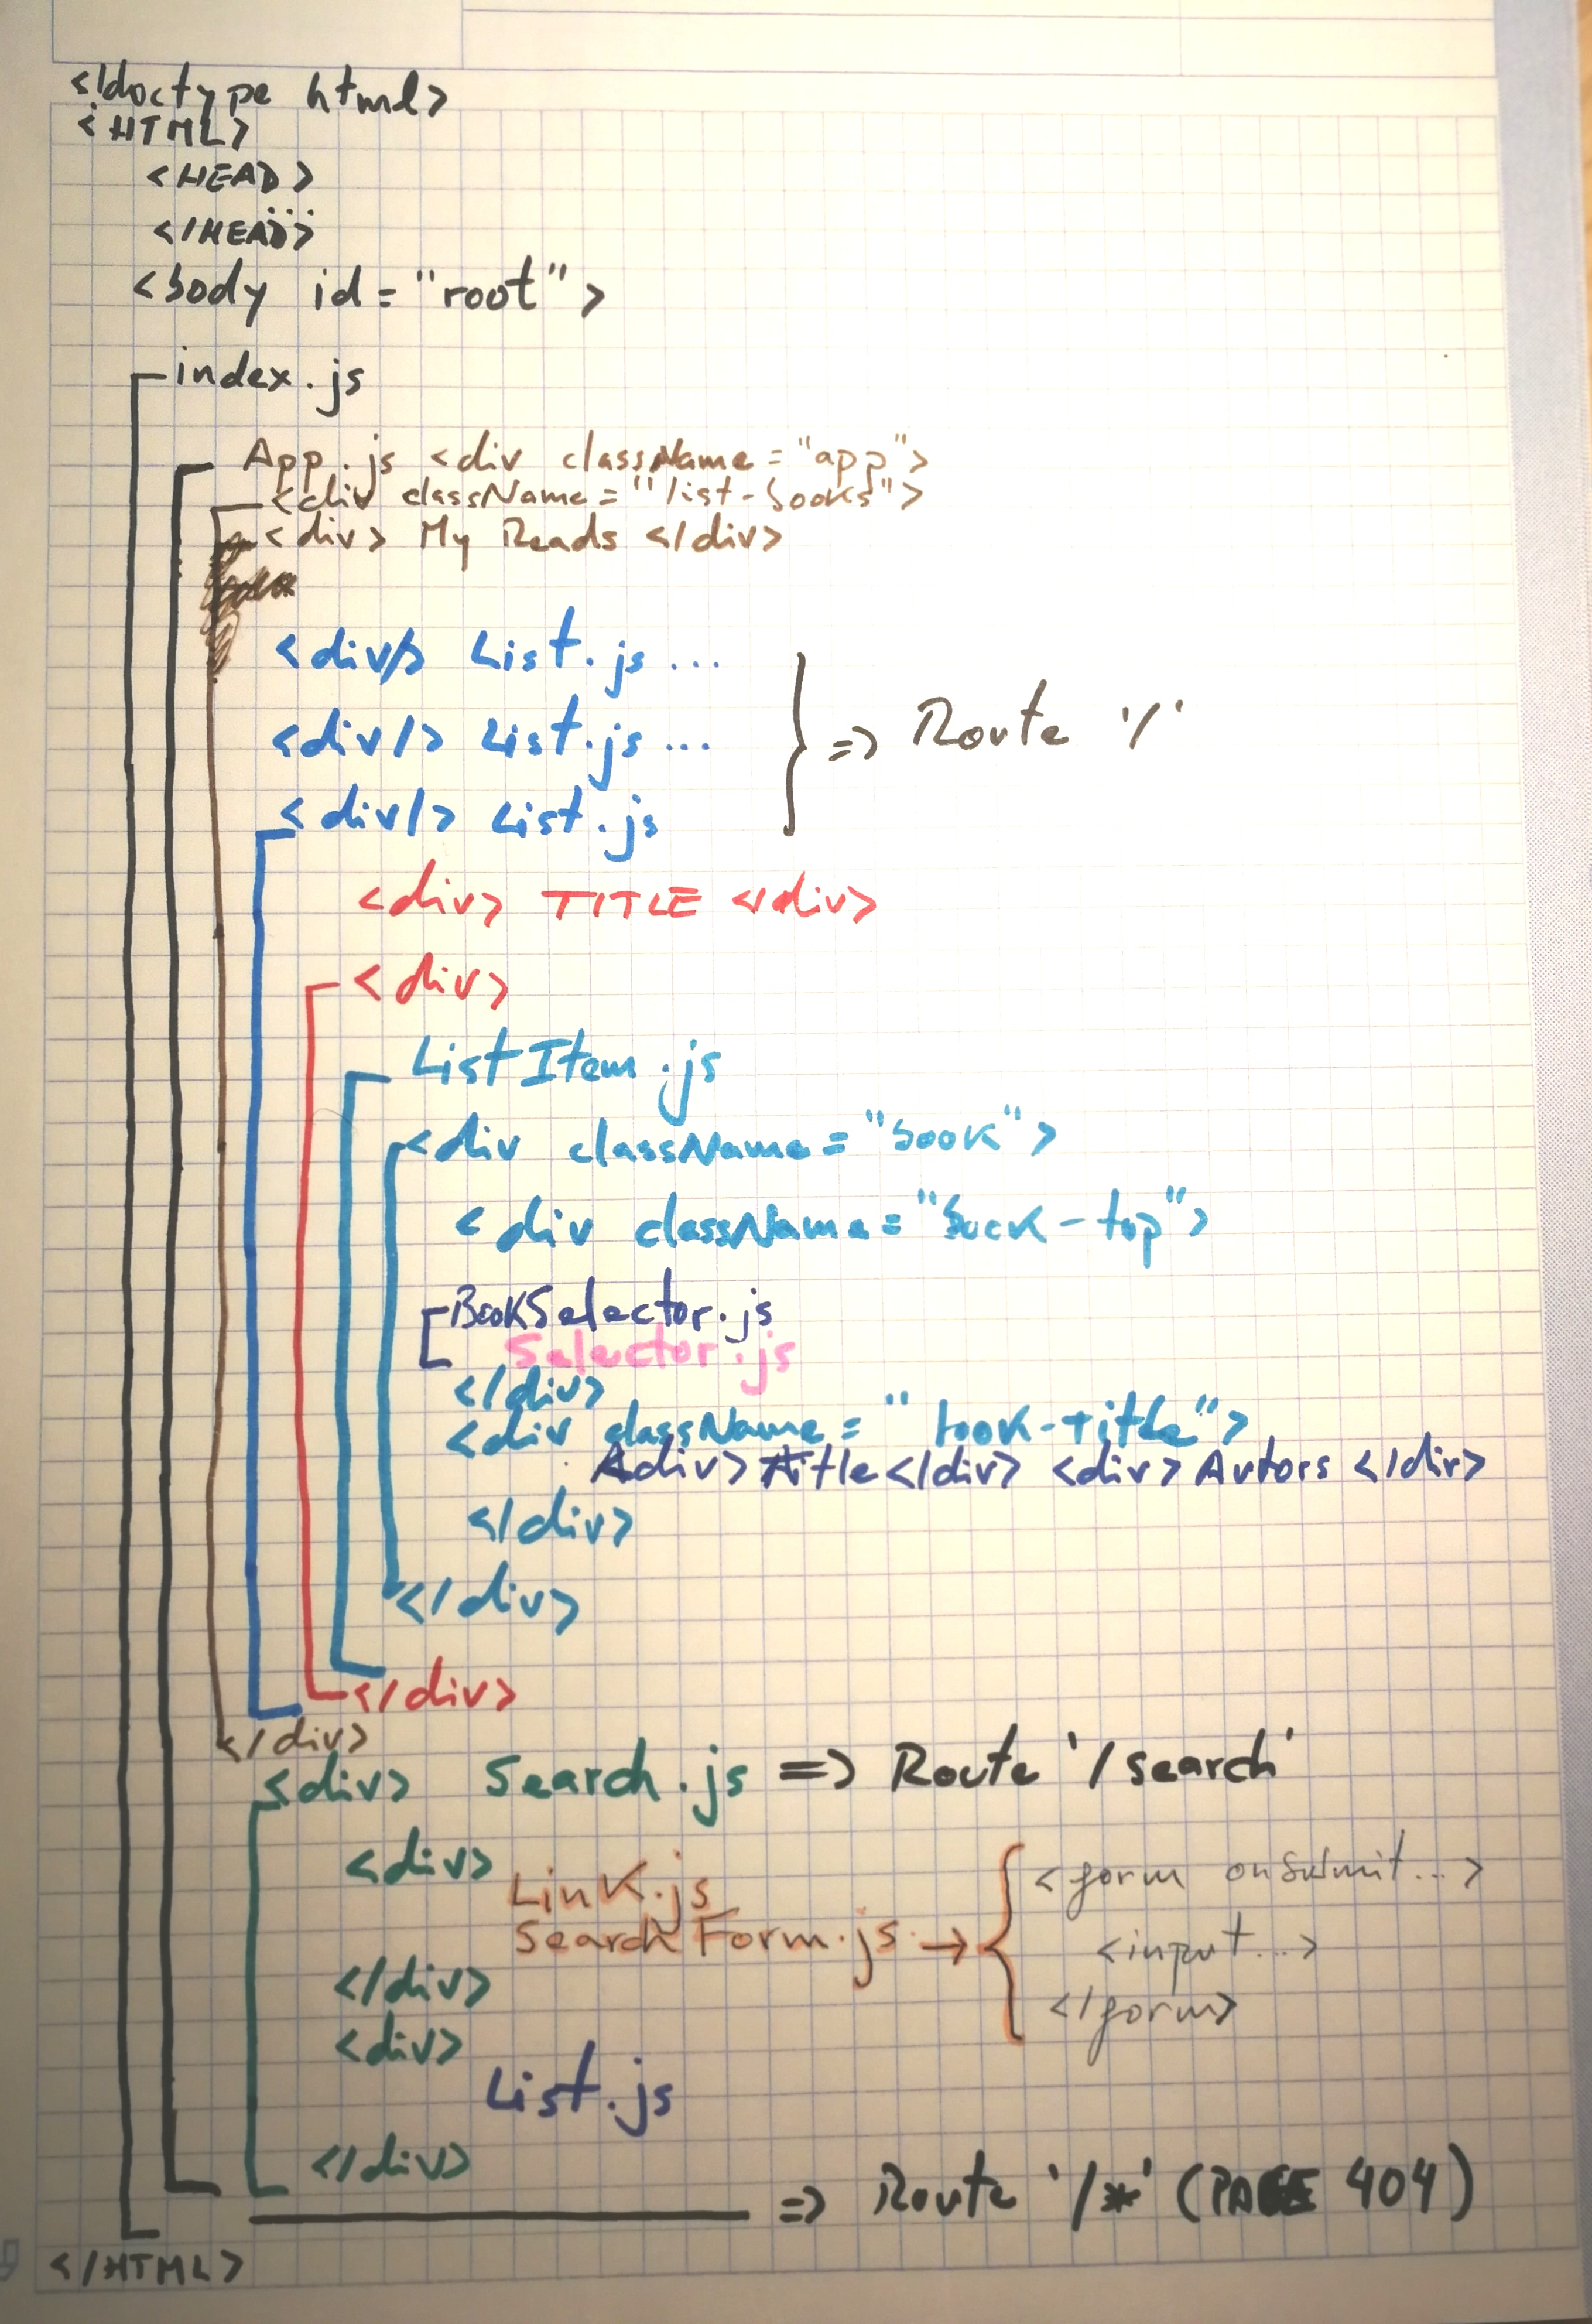 <!doctype html>
<HTML>
<HEAD>
...
</HEAD>
<body id="root">
index.js
App.js <div className="app">
<div className="list-books">
<div> My Reads </div>
<div/> List.js ...
<div/> List.js ... } => Route '/'
<div/> List.js
<div> TITLE </div>
<div>
ListItem.js
<div className="book">
<div className="book-top">
BookSelector.js
Selector.js
</div>
<div className="book-title">
<div> title </div> <div> Autors </div>
</div>
</div>
</div>
</div>
<div> Search.js => Route '/search'
<div>
Link.js
SearchForm.js → { <form onSubmit...>
<input...>
</form>
</div>
<div>
List.js
</div>
=> Route '/*' (PAGE 404)
</HTML>